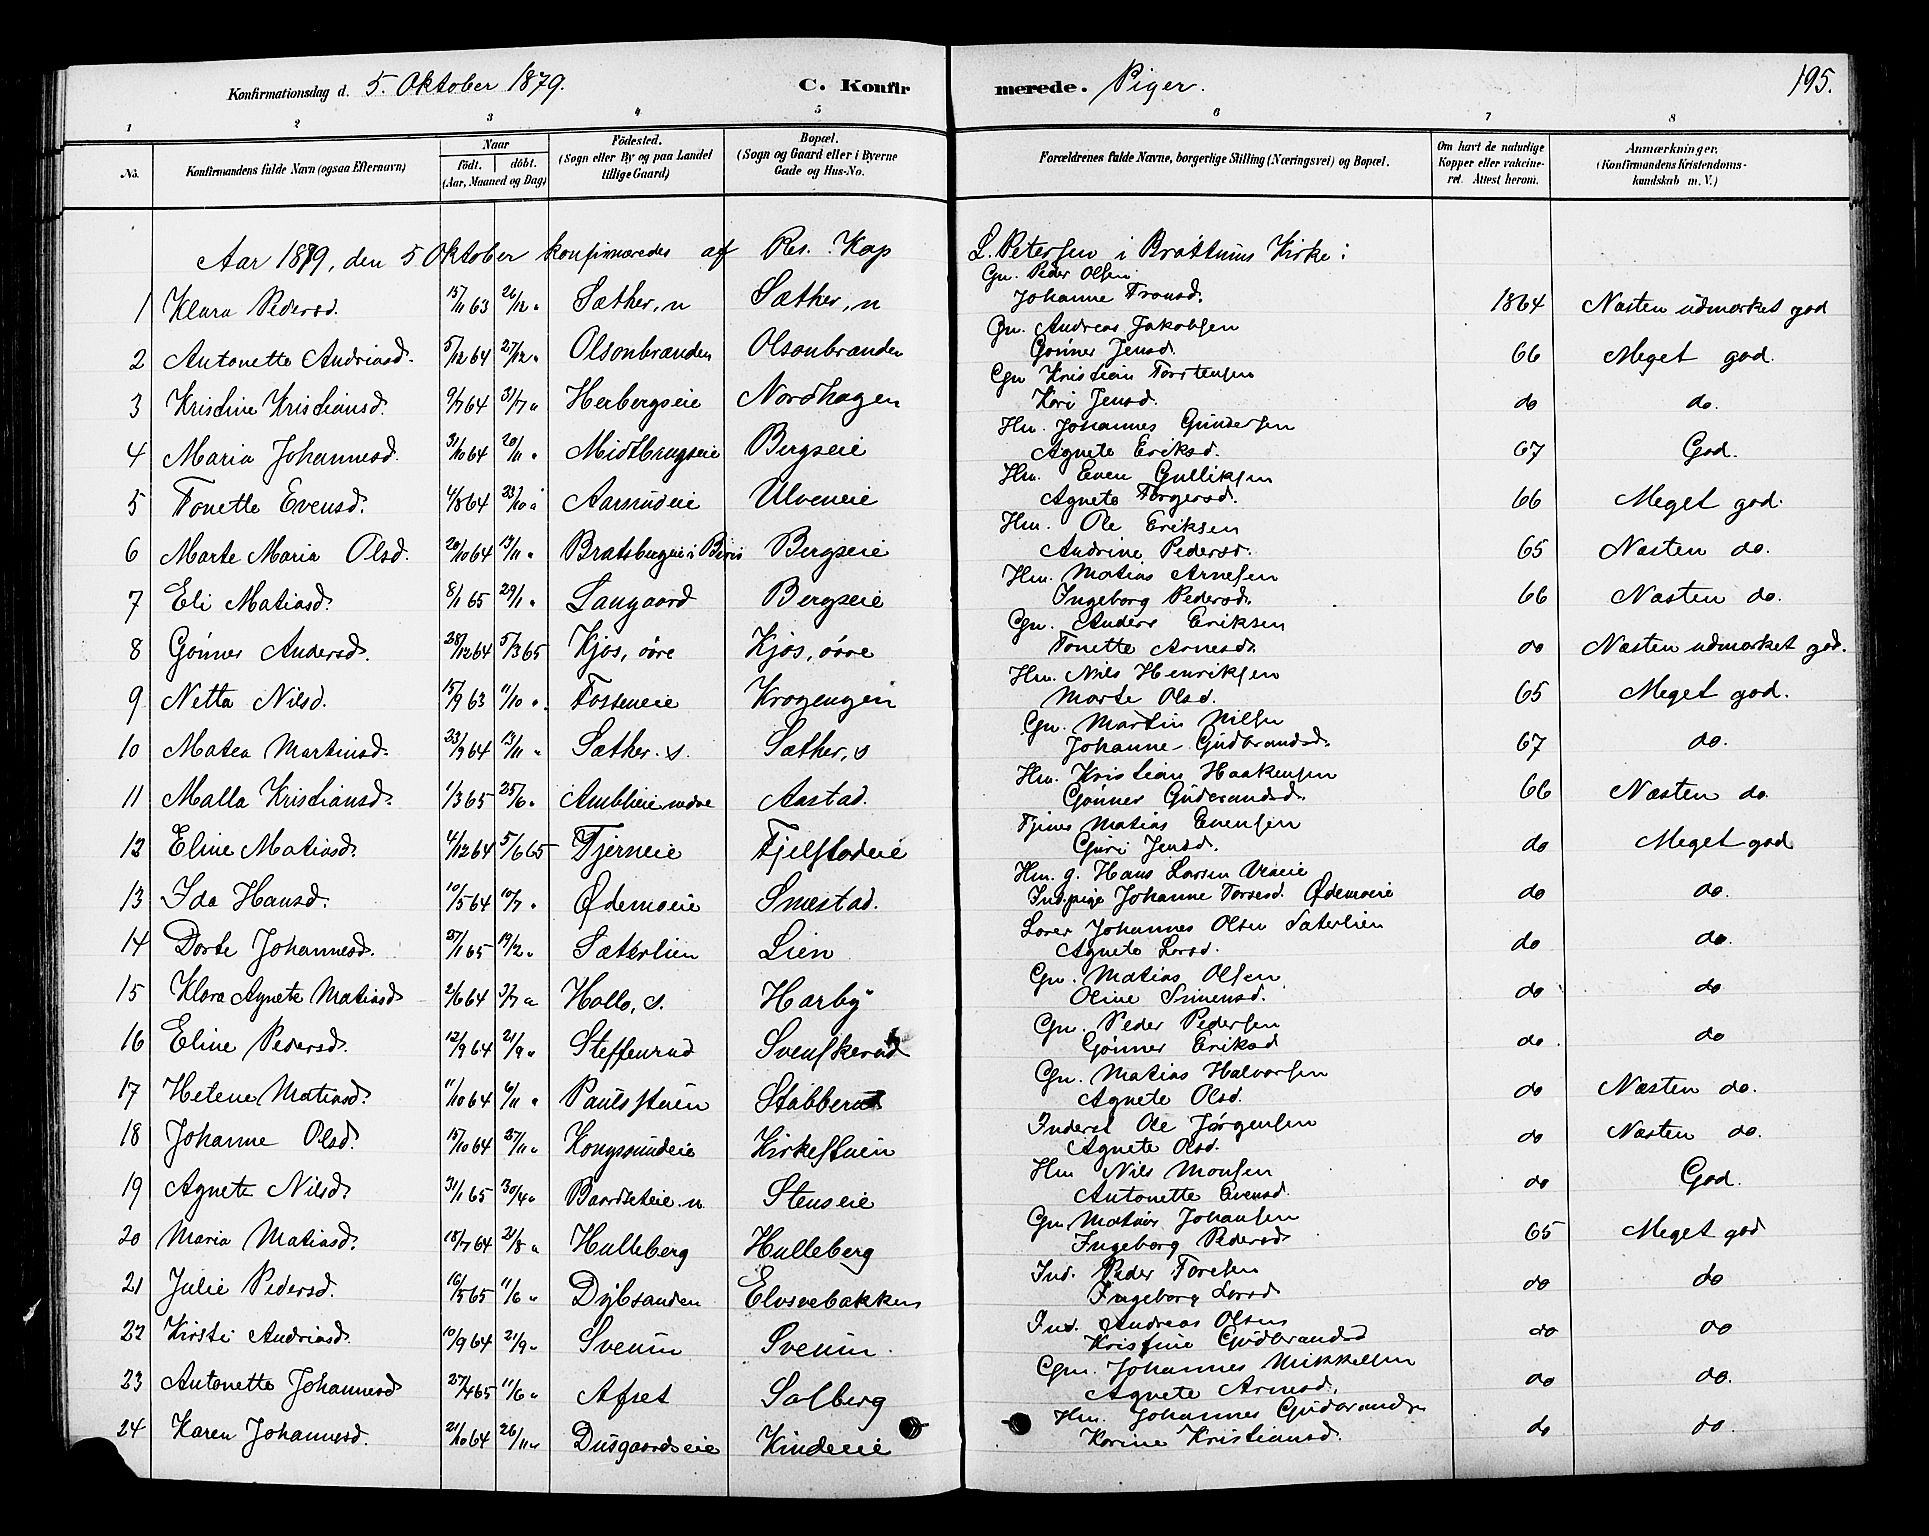 Konfirmationsdag d. 5. Oktober 1879. C. Konfirmerede. Piger. 195.
1 2 3 4 5 6 7 8
No. Konfirmandens fulde Navn (ogsaa Efternavn) Naar födt. döbt. (Aar, Maaned og Dag) Födested. (Sogn eller By og paa Landet tillige Gaard) Bopæl. (Sogn og Gaard eller i Byerne Gade og Hus-No. Forældrenes fulde Navne, borgerlige Stilling (Næringsvei) og Bopæl. Om havt de naturlige Kopper eller vakcineret. Attest herom. Anmærkninger. (Konfirmandens Kristendomskundskab m. V.)
Aar 1879, den 5 Oktober konfirmeredes af Res. Kap L. Petersen i Bråttums Kirke:
1 Klara Pedersd. 15/11 63 26/12 " Sæther, n Sæther, n Gn. Peder Olsen Johanne Tronsd. 1864 Næsten udmærket god
2 Antonette Andriasd. 5/12 64 27/12 " Olsonbranden Olsonbranden Gn. Andreas Jakobsen Gønner Jensd. 66 Meget god.
3 Kristine Kristiansd. 9/7 64 31/7 " Herbergseie Nordhagen Gn Kristian Torstensen Kari Jensd. do do.
4 Maria Johannesd. 31/10 64 20/11 " Midtbrugseie Bergseie Hm. Johannes Gundersen Agnete Eriksd. 67 God.
5 Tonette Evensd. 4/8 64 23/10 " Aarsrudeie Ulveneie Hm. Even Gulliksen Agnete Torgersd. 66 Meget god.
6 Marte Maria Olsd. 20/10 64 13/11 " Bratsbergeie i Biris Bergseie Hm. Ole Eriksen Andrine Pedersd. 65 Næsten do.
7 Eli Matiasd. 8/1 65 29/1 " Langaard Bergseie Hm. Matias Arnesen Ingeborg Pedersd. 66 Næsten do.
8 Gønner Andersd. 28/12 64 5/3 65 Kjos, øvre Kjos, øvre Gn. Anders Eriksen Tonette Arnesd. do Næsten udmærket god.
9 Netta Nilsd. 15/9 63 11/10 " Fosseneie Krogengen Hm. Nils Henriksen Marte Olsd. 65 Meget god.
10 Matea Martinsd. 23/9 64 13/11 " Sæther. s. Sæther, s Gn. Martin Nilsen Johanne Gudbrandsd. 67 do.
11 Malla Kristiansd. 1/3 65 25/6 " Amblieie nedre Aastad. Hm. Kristian Haakensen Gønner Gudbrandsd. 66 Næsten do
12 Eline Matiasd. 4/12 64 5/6 65 Tjerneie Fjelstadeie Tjener Matias Evensen Guri Jensd. do Meget god
13 Ida Hansd. 10/5 64 10/7 " Ødemoeie Smestad. Hm. g. Hans Larsen Ind.pige Johanne Torresd. Ødemoeie do do.
14 Dorte Johannesd. 27/1 65 19/2 " Sæterlien Lien Lærer Johannes Olsen Sæterlien Agnete Larsd. do do.
15 Klara Agnete Matiasd 2/6 64 3/7 " Hallo, s. Harby Gn. Matias Olsen Oline Simensd. do do
16 Eline Pedersd. 12/9 64 21/9 " Steffenrud Svenskerud Gn. Peder Pedersen Gønner Eriksd do do
17 Helene Matiasd. 11/10 64 6/11 " Paulsstuen Stabberud Gn. Matias Halvorsen Agnete Olsd. do Næsten do.
18 Johanne Olsd. 15/10 64 27/11 " Kongssundeie Kirkestuen Inderst Ole Jørgensen Agnete Olsd. do Næsten do.
19 Agnete Nilsd. 31/1 65 30/4 " Baardseteie. n. Stenseie Hm Nils Monsen Antonette Evensd. do God.
20 Maria Matiasd. 18/7 64 21/8 " Hulleberg Hulleberg Gn Matias Johansen Ingeborg Pedersd. 65 Meget god
21 Julie Pedersd. 16/3 65 11/6 " Dybsanden Elvsvebakken Ind. Peder Toresen Ingeborg Larsd do do
22 Kirsti Andriasd. 10/9 64 21/9 " Sveum Sveum. Ind. Andreas Olsen Kristine Gudbrandsd do do
23 Antonette Johannesd 27/4 65 11/6 " Afset Solberg Gm. Johannes Mikkelsen Agnete Arnesd. do do.
24 Karen Johannesd. 21/10 64 26/11 " Dusgaardseie Kindeie Hm. Johannes Gudbrandsen Karine Kristiansd. do do.